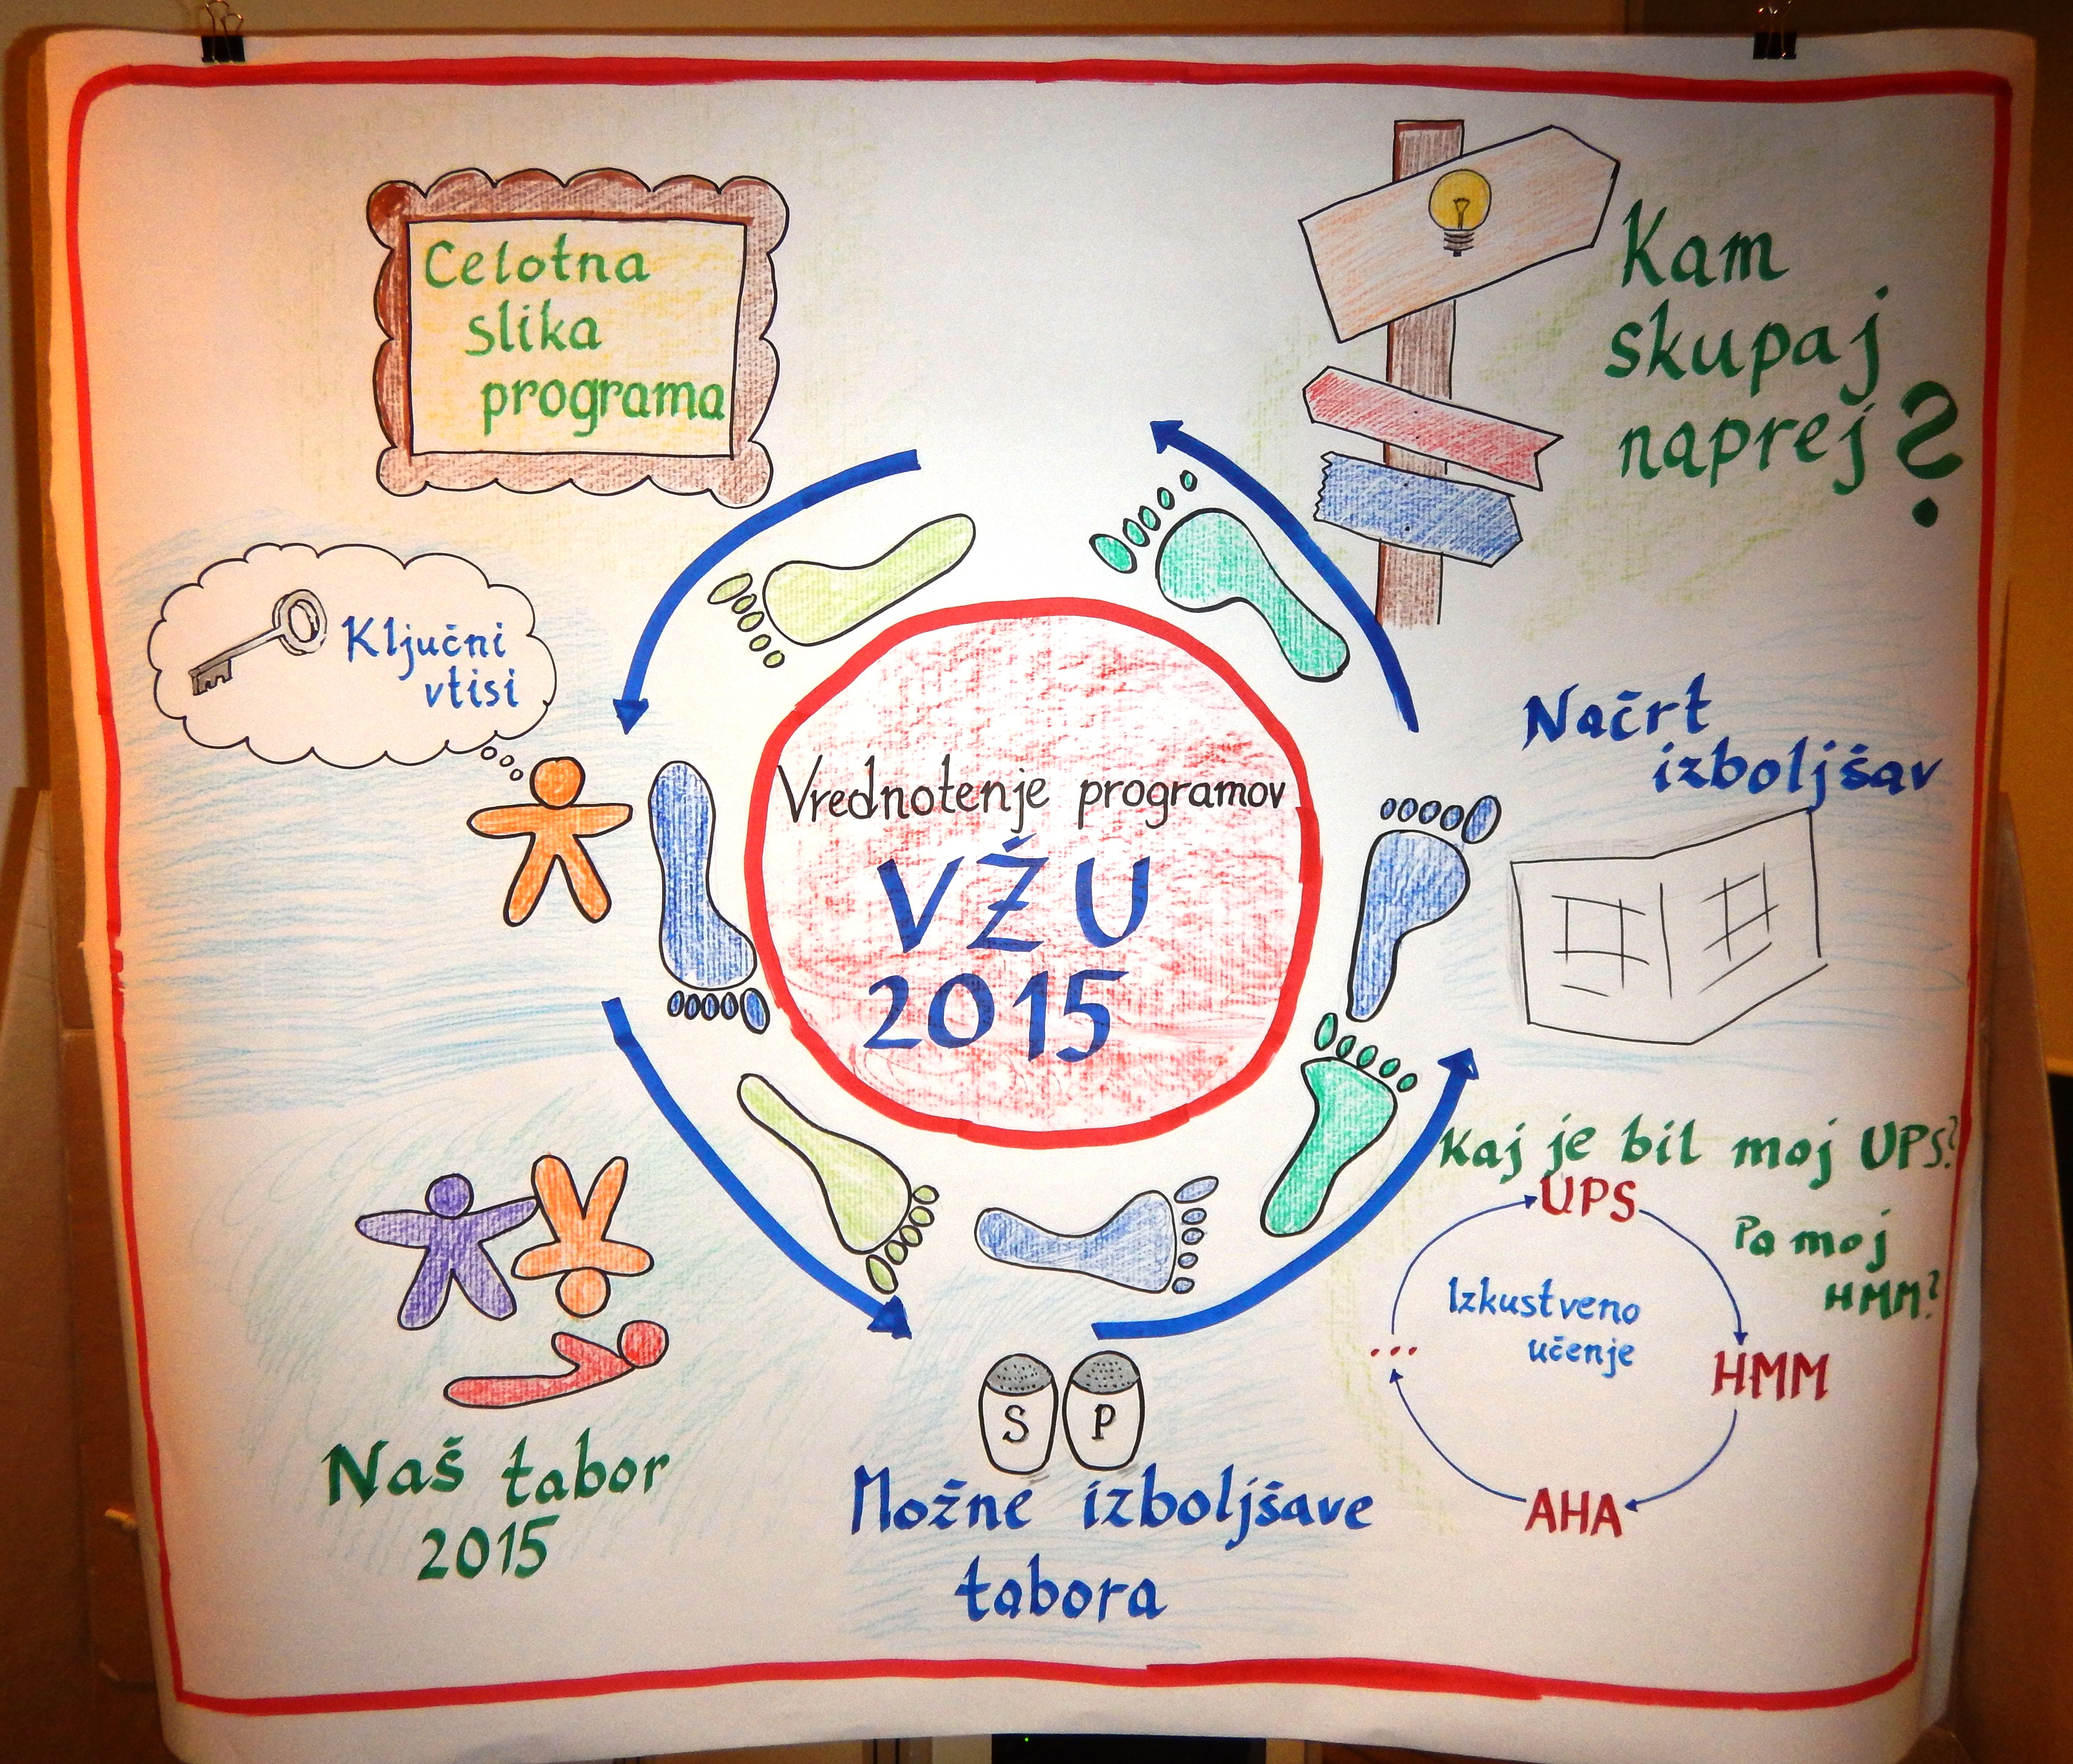 Celotna
slika
programa
Kam
skupaj
naprej?
Ključni
vtisi
Vrednotenje programov
VŽU
2015
Načrt
izboljšav
Naš tabor
2015
S P
Možne izboljšave
tabora
Kaj je bil moj UPS?
Pa moj
HMM?
UPS
HMM
AHA
...
Izkustveno
učenje